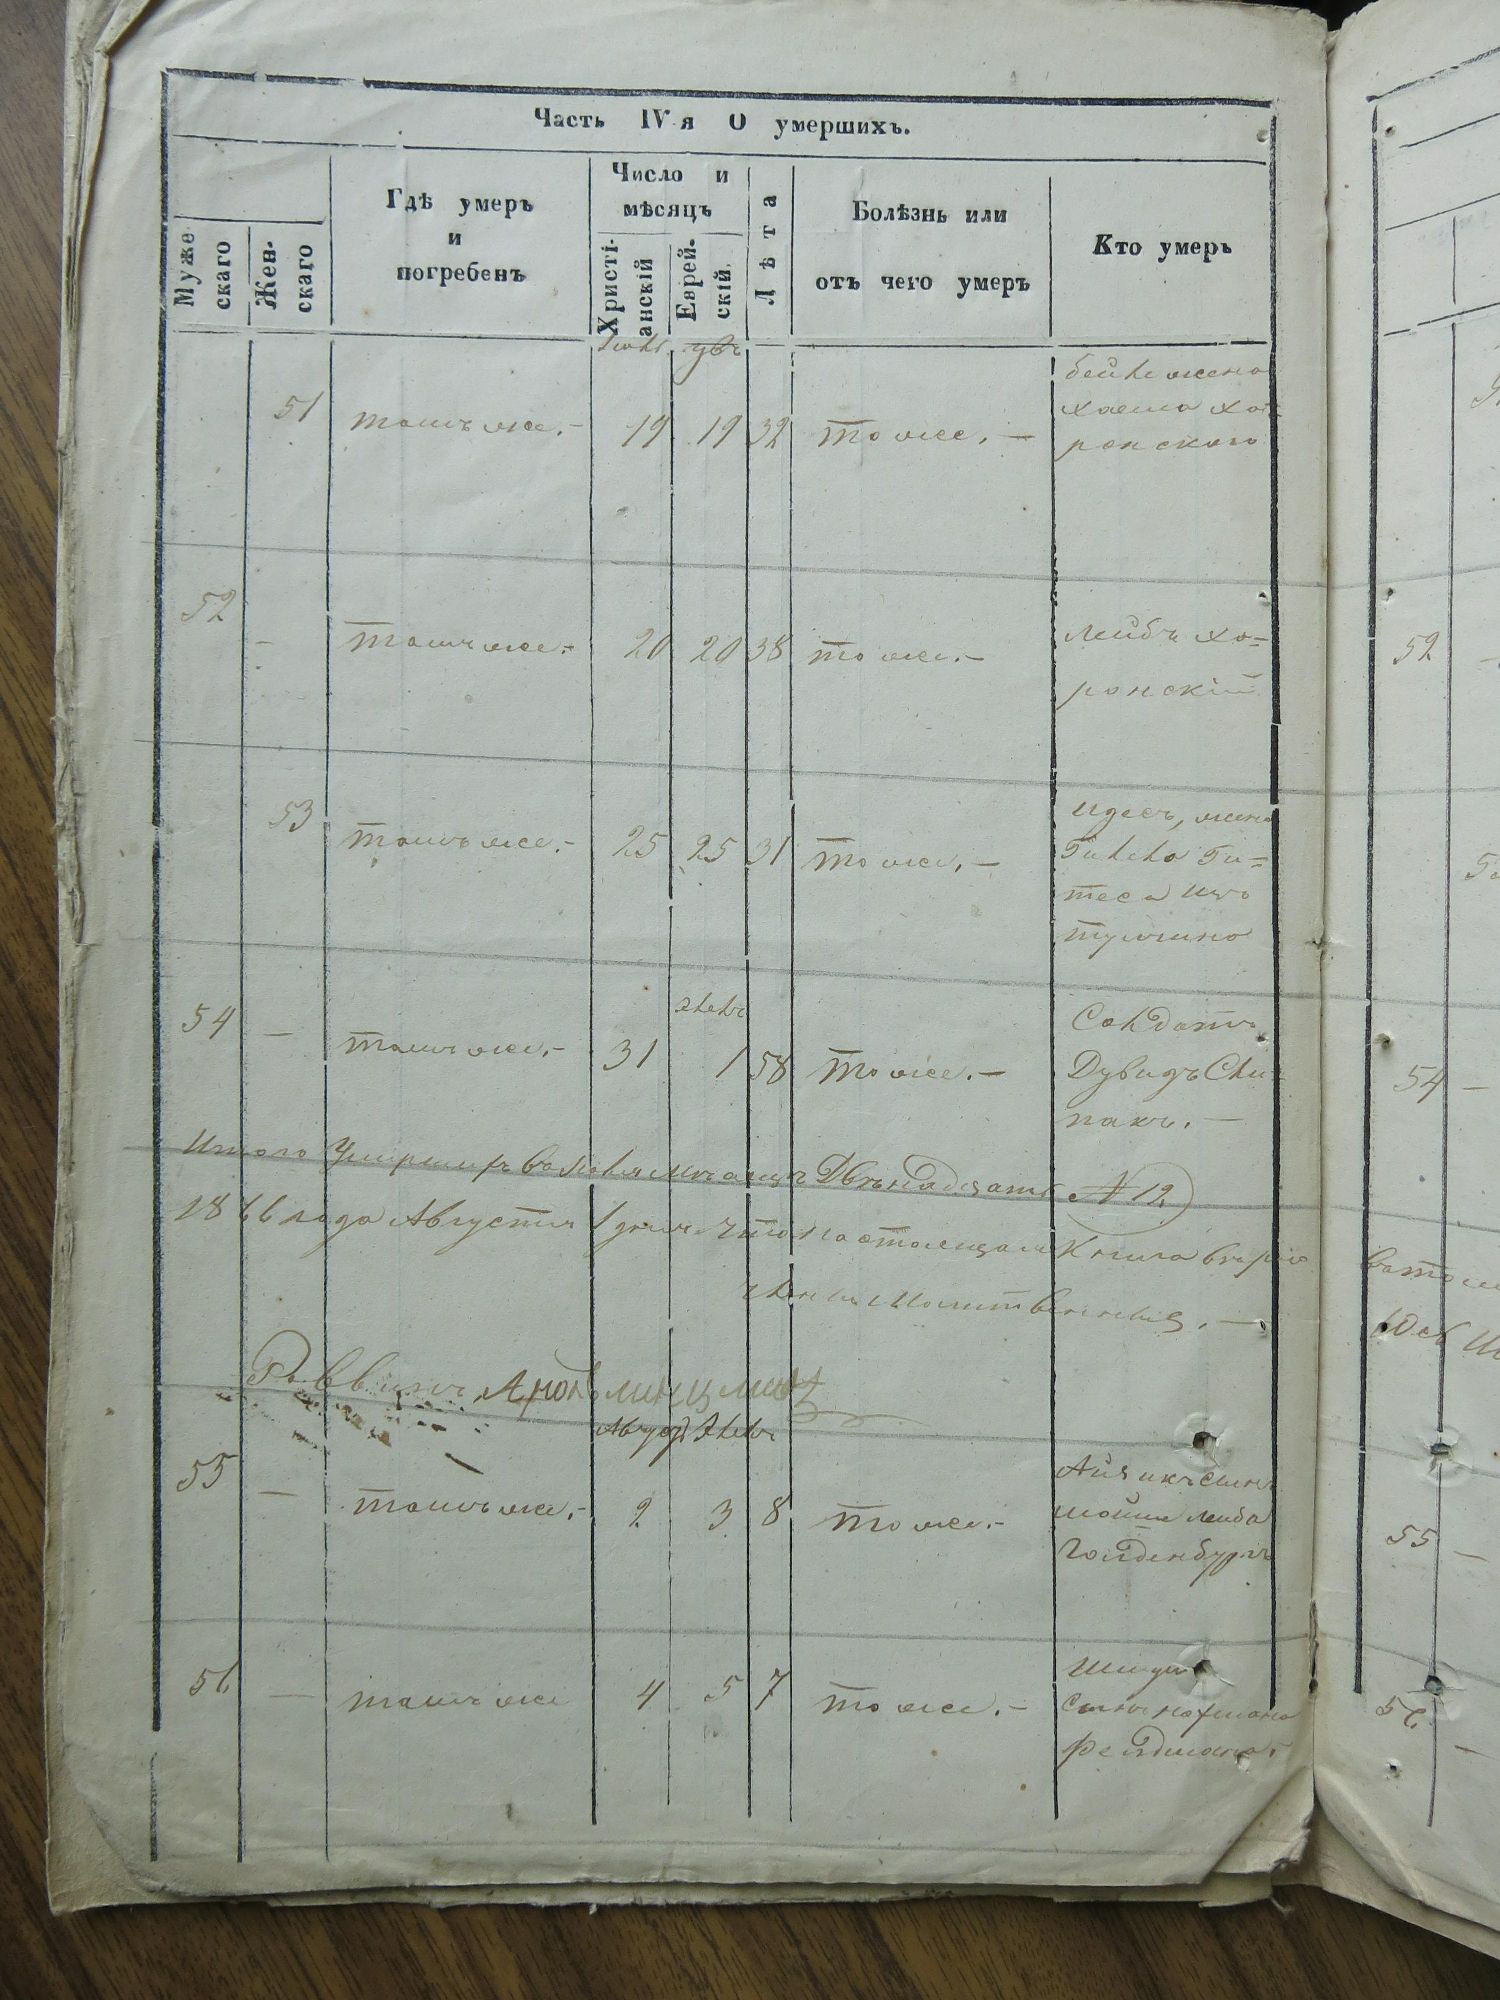 Часть IV я О умершихъ.
Муже
скаго
Жен-
скаго
Гдѣ умеръ
и
погребенъ
Число и
мѣсяцъ
Христі-
анскій
Еврей-
скій
Лѣта
Болѣзнь или
отъ чего умеръ
Кто умеръ
51 тамъ же.- 19 19 32 тоже. -
жена
Хаима Хо-
ронскаго
52 - тамъ же.- 20 20 38 тоже.-
Лейбъ Хо=
ронскій
53 тамъ же.- 25 25 31 тоже. -
Идесъ, жена
Ги=
теса изъ
54 - тамъ же.- 31 1 58 тоже. -
Солдатъ
Дувидъ Сли-
пакъ. -
Итого мѣсяцъ Двѣнадцать № 12
1866 года Августа 1 дня что настоящая Книга
Раввинъ
Авгус Элелъ
55 - тамъ же.- 2 3 8 тоже.-
Айзикъ сынъ
Лейба
56 - тамъ же 4 5 7 тоже.-
сынъ Нахмана
52
54 -
55 -
56. -